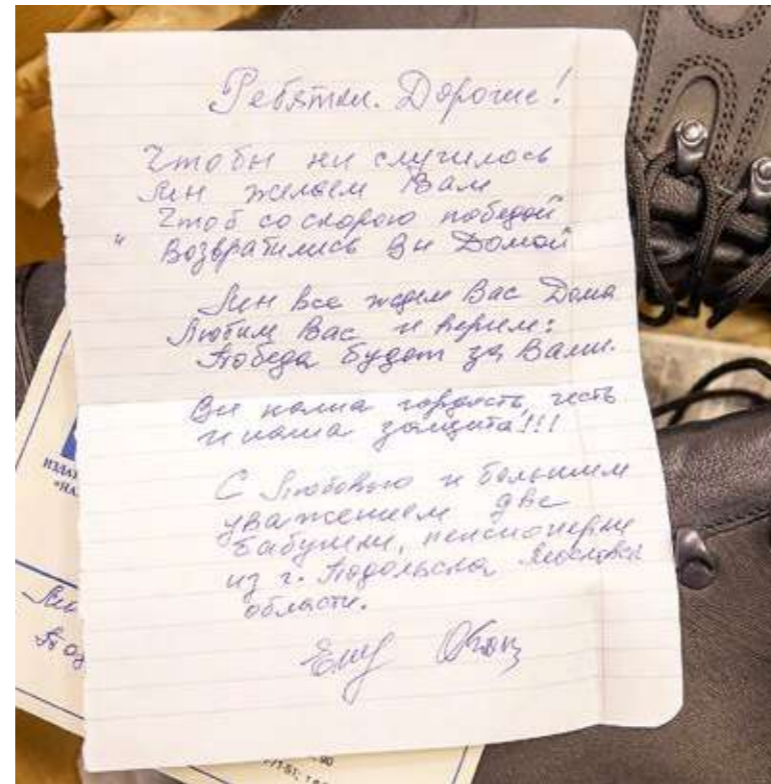 Ребятки. Дорогие!
Чтобы ни случилось
Мы желаем Вам
Чтоб со скорою победой
" Возвратились Вы Домой
Мы все ждем Вас Дома
Любим Вас и верим:
Победа будет за Вами.
Вы наша гордость, честь
и наша защита!!!
С Любовью и большим
уважением две
бабушки, пенсионерки
из г. Подольска Московской
области.
ИЗДАТ
«НА
90